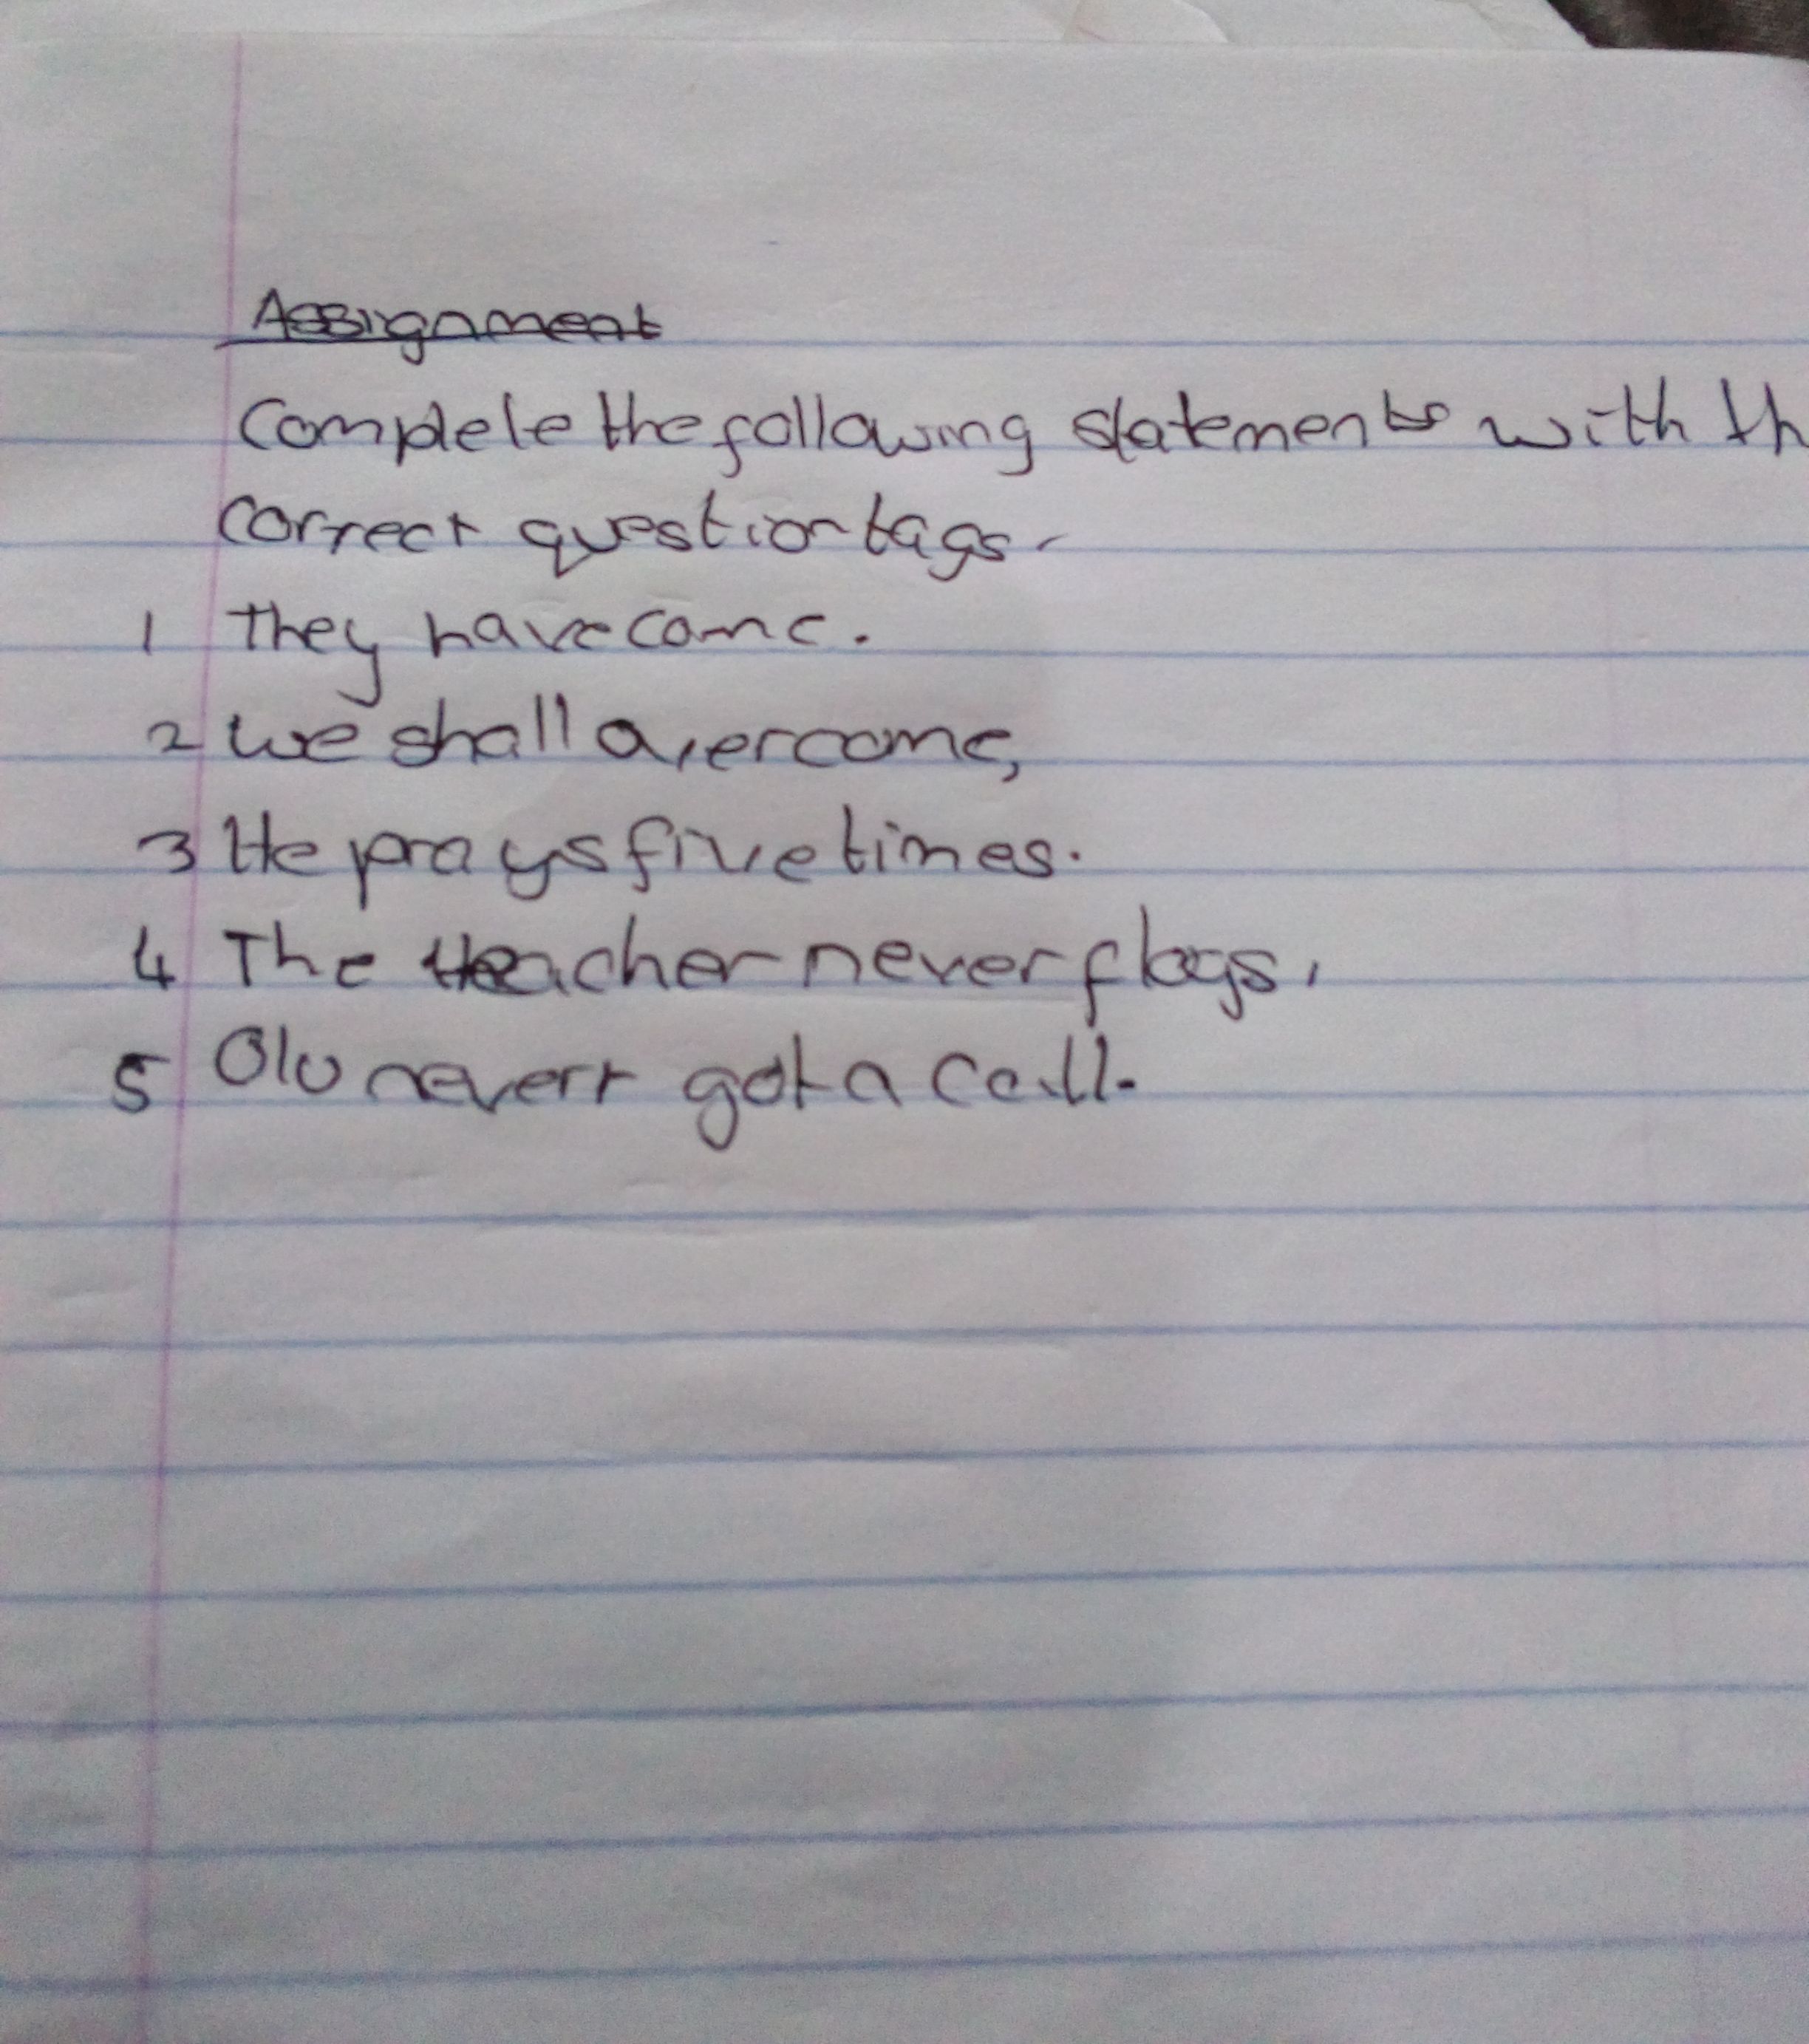 Assignment
Complete the following statements with th
correct question tags.
1 They have come.
2 We shall overcome,
3 He prays five times.
4 The teacher never flogs,
5 Olu never got a call.